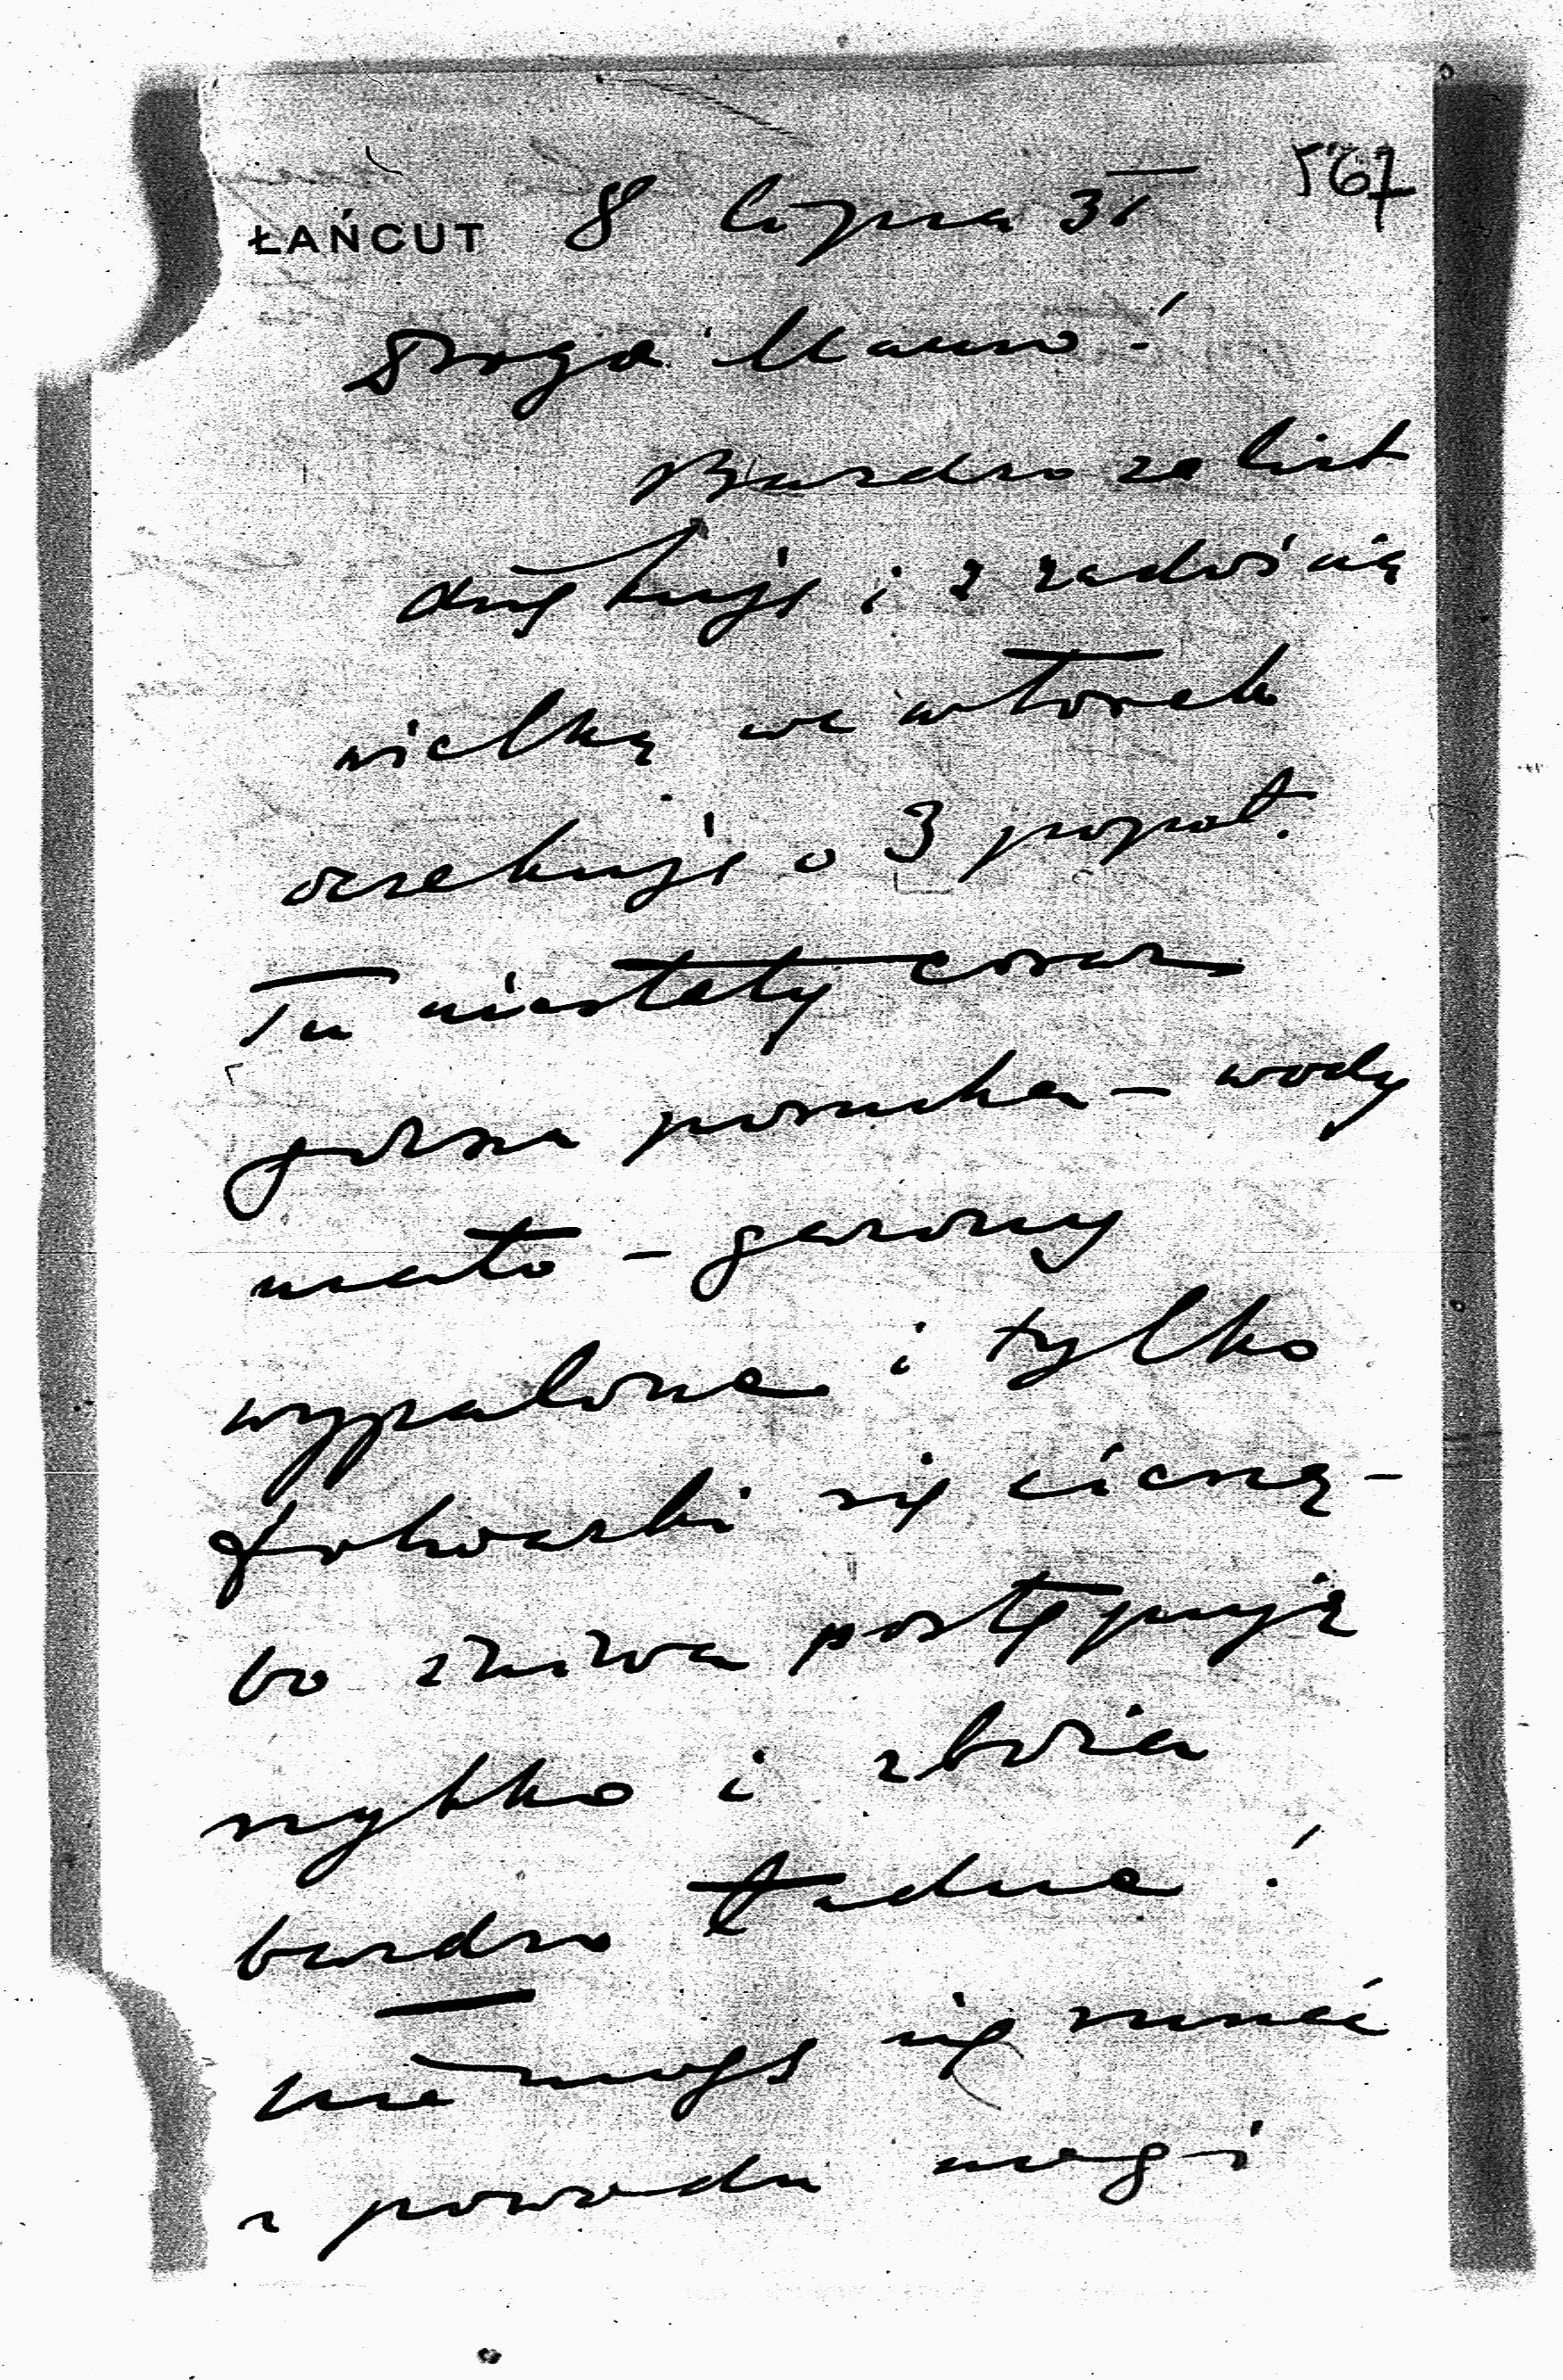 567
ŁAŃCUT 8 lipca 31
Droga Mamo!
Bardzo za list
dziękuję i z radością
wielką we wtorek
oczekuję o 3 popoł.
Tu niestety coraz
gorsza posucha – wody
mało – gazony
wypalone i tylko
folwarki się cieszą –
bo żniwa postępują
szybko i zboża
bardzo ładne!
nie mogę się ruszać
z powodu nogi